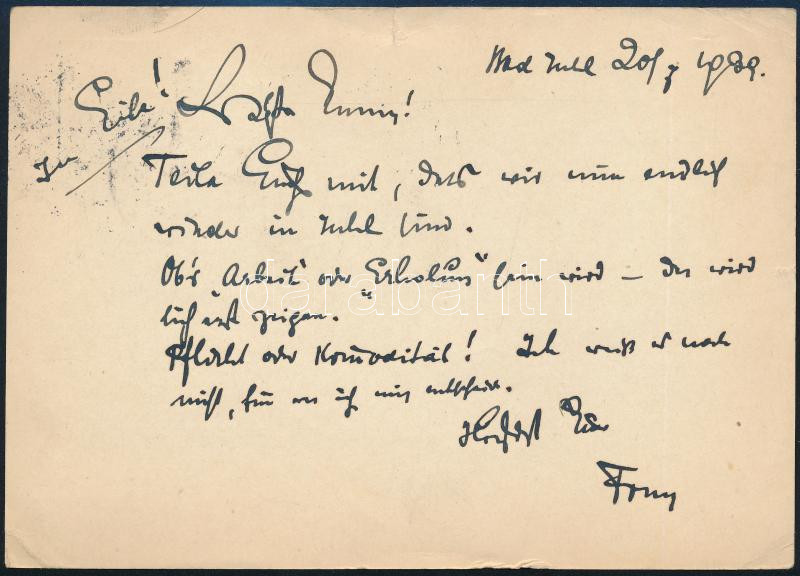 Bad Ischl 20/7 1939.
Eile! Liebste Emmy!
Teile Euch mit, dass wir nun endlich
wieder in Ischl sind.
Ob's "Arbeit" oder "Erholung" sein wird – das wird
sich erst zeigen.
Pflicht oder Komodität! Ich weiß es noch
nicht, für was ich mich entscheide.
Herzlichst Euer
darabanth